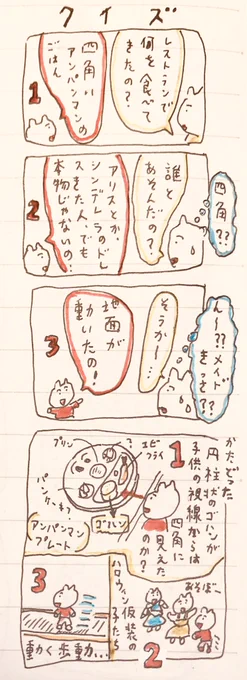 クイズ
レストランで
何を食べて
きたの?
四角い
アンパンマンの
ごはん
1
誰と
あそんだの?
アリスとか、
シンデレラのドレ
スきた人、でも
本物じゃないの!
2
四角??
ん〜??メイド
きっさ??
そうか〜…
地面が
動いたの!
3
1
かたどった
円柱状のゴハンが
子供の視線からは
四角に
見えた
のか?
エビ
フライ
?
プリン
パンケーキ
ゴハン
アンパンマン
プレート
あそぼー
ハロウィン仮装の
子たち
2
3
動く歩動…